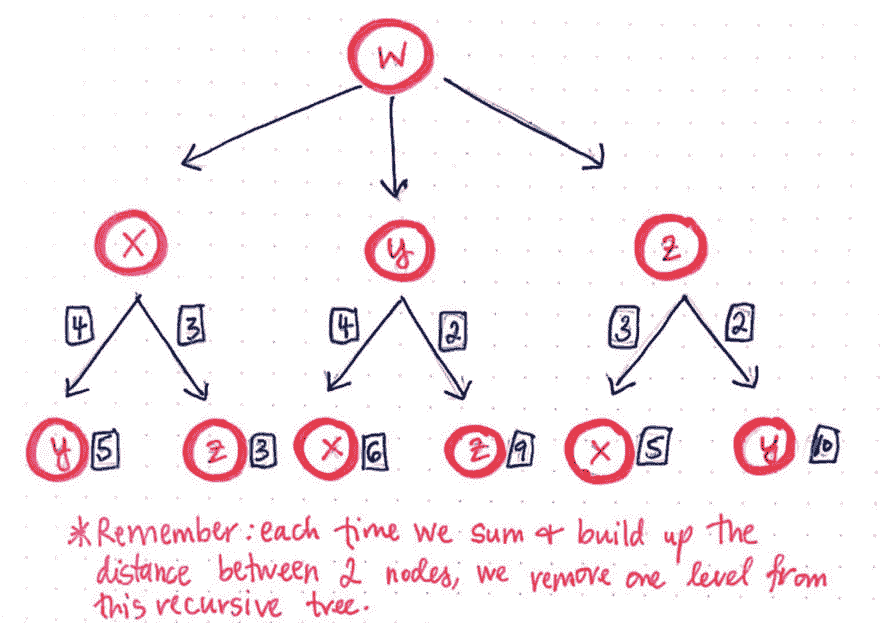 W
X y z
4 3 4 2 3 2
y 5 z 3 X 6 z 9 X 5 y 10
*Remember: each time we sum & build up the
distance between 2 nodes, we remove one level from
this recursive tree.